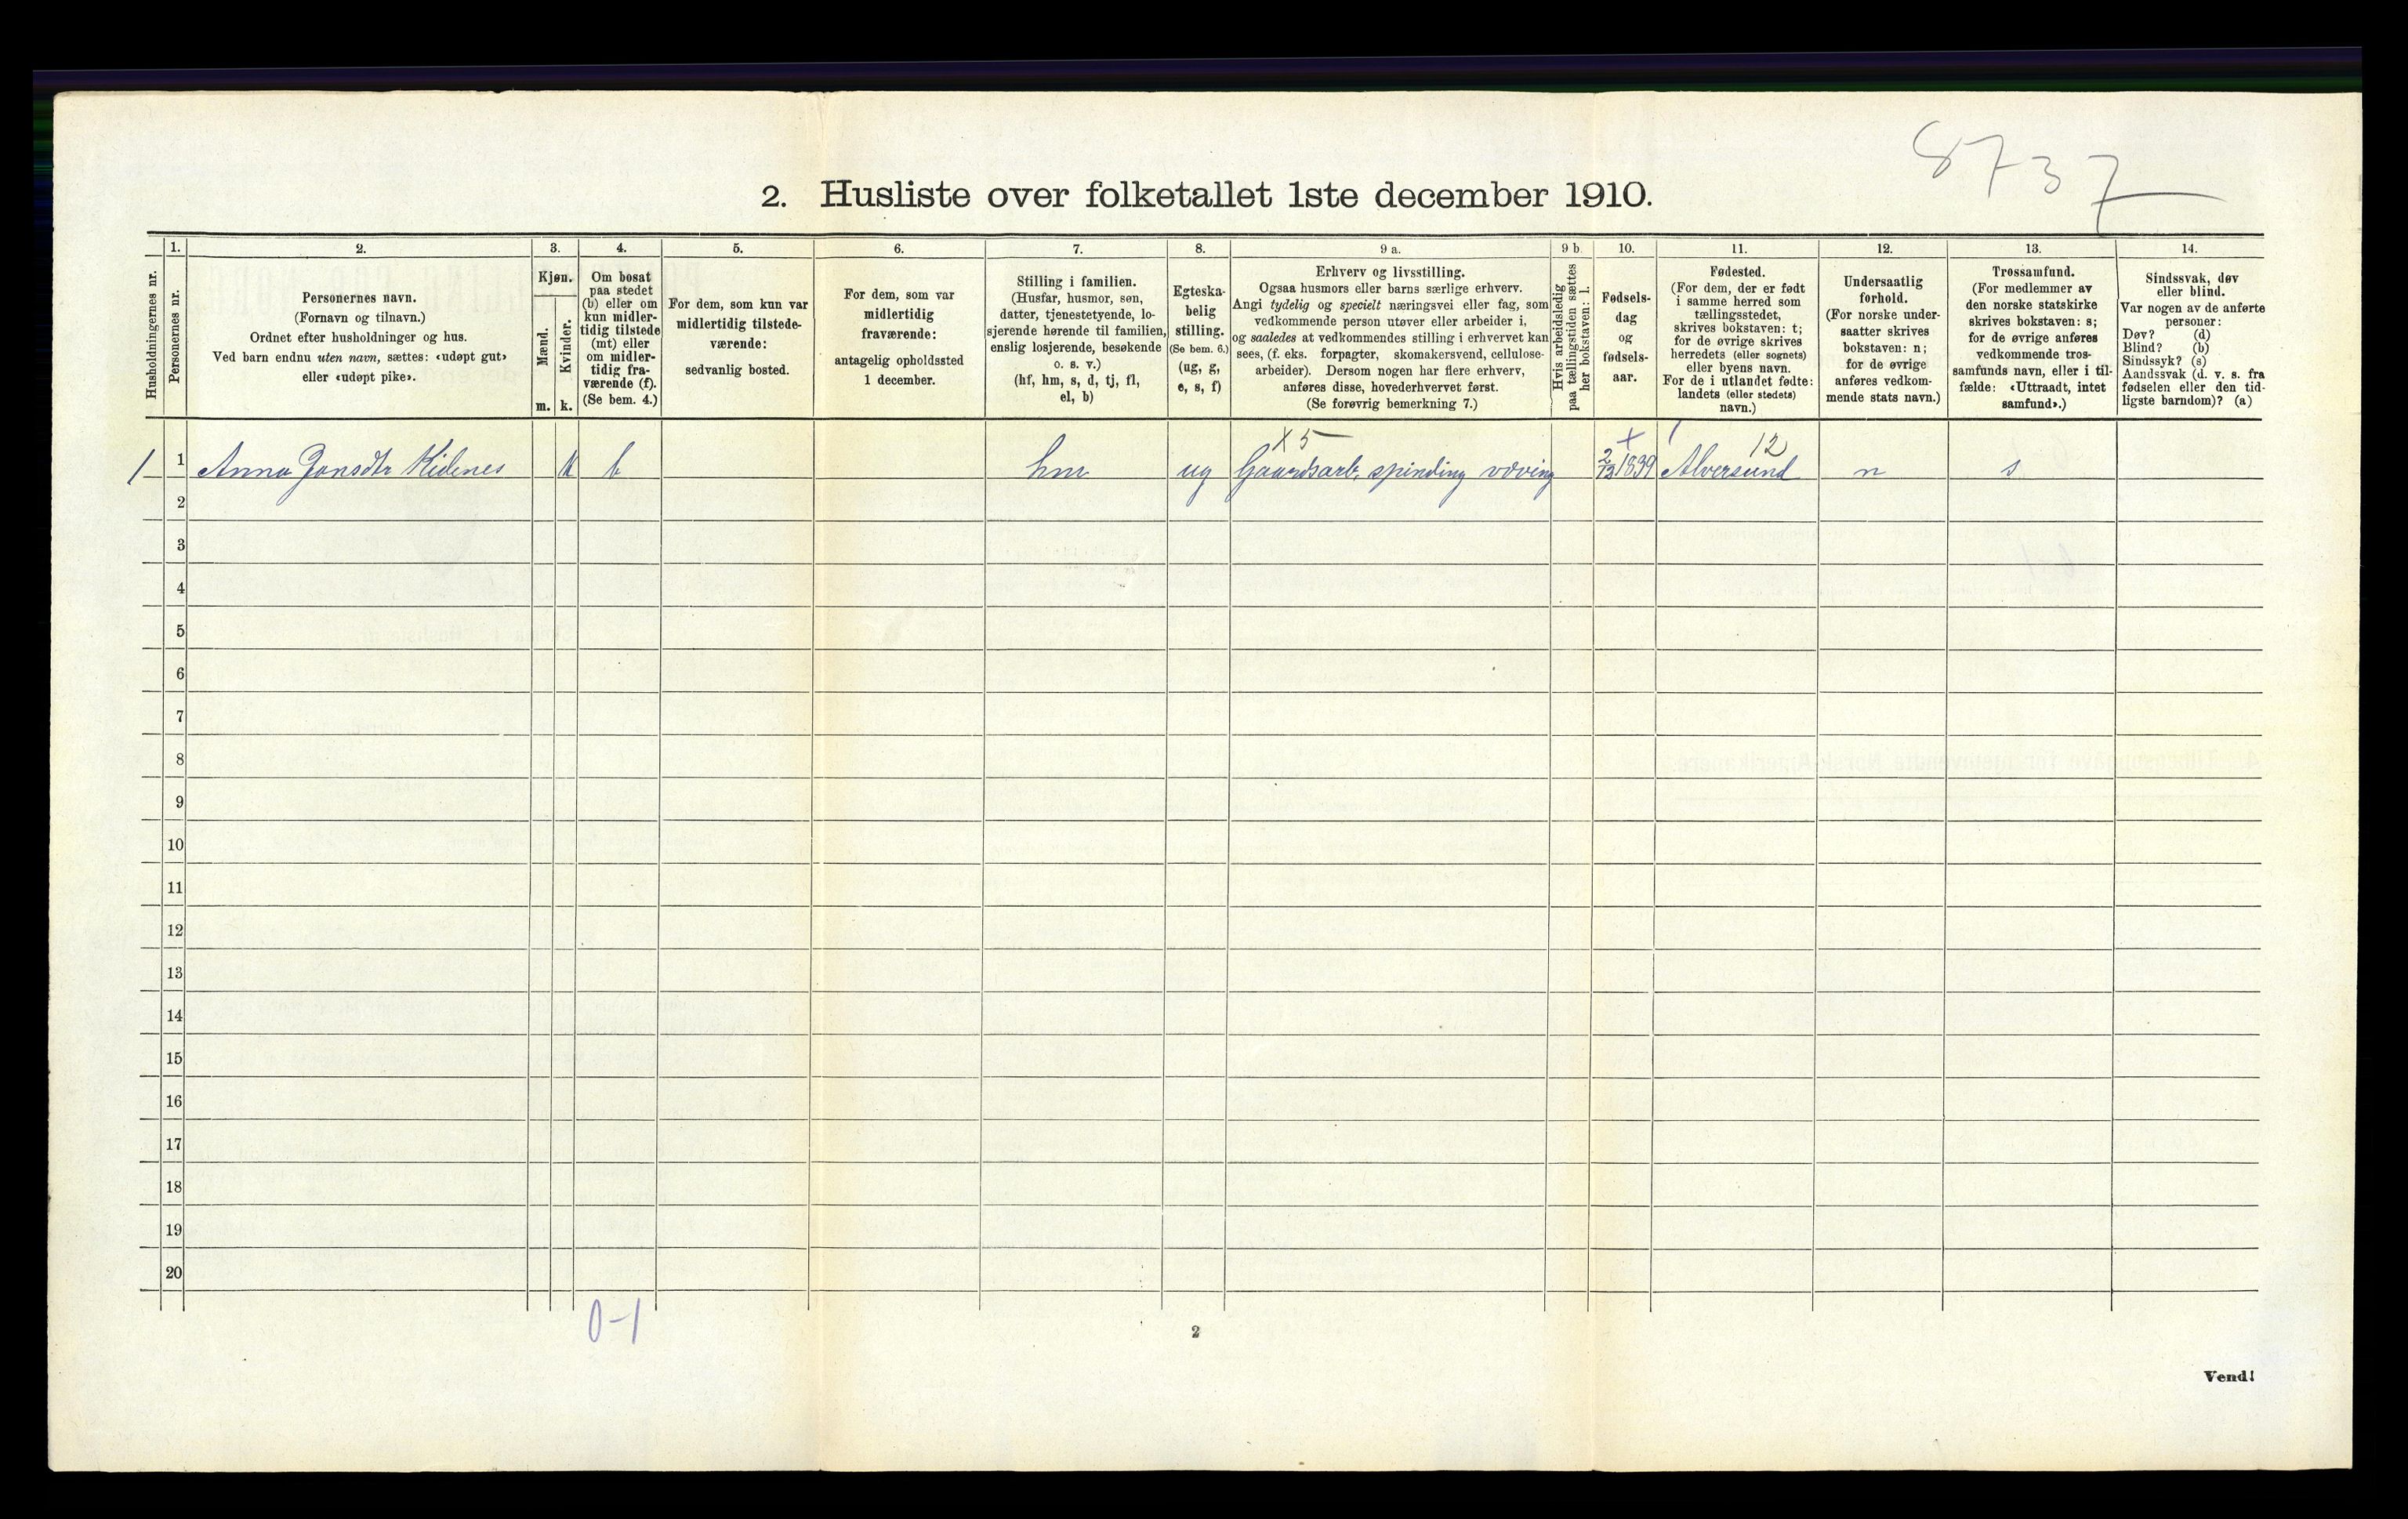 8737
2. Husliste over folketallet 1ste december 1910.
Husholdningernes nr.
1.
Personernes nr.
2.
Personernes navn.
(Fornavn og tilnavn.)
Ordnet efter husholdninger og hus.
Ved barn endnu uten navn, sættes: «udøpt gut»
eller «udøpt pike».
3.
Kjøn.
Mænd.
m.
Kvinder.
k.
4.
Om bosat
paa stedet
(b) eller om
kun midler-
tidig tilstede
(mt) eller
om midler-
tidig fra-
værende (f).
(Se bem. 4.)
5.
For dem, som kun var
midlertidig tilstede-
værende:
sedvanlig bosted.
6.
For dem, som var
midlertidig
fraværende:
antagelig opholdssted
1 december.
7.
Stilling i familien.
(Husfar, husmor, søn,
datter, tjenestetyende, lo-
sjerende hørende til familien,
enslig losjerende, besøkende
o. s. v.)
(hf, hm, s, d, tj, fl,
el, b)
8.
Egteska-
belig
stilling.
(Se bem. 6.)
(ug, g,
e, s, f)
9 a.
Erhverv og livsstilling.
Ogsaa husmors eller barns særlige erhverv.
Angi tydelig og specielt næringsvei eller fag, som
vedkommende person utøver eller arbeider i,
og saaledes at vedkommendes stilling i erhvervet kan
sees, (f. eks. forpagter, skomakersvend, cellulose-
arbeider). Dersom nogen har flere erhverv,
anføres disse, hovederhvervet først.
(Se forøvrig bemerkning 7.)
9 b
Hvis arbeidsledig
paa tællingstiden sættes
her bokstaven: l.
10.
Fødsels-
dag
og
fødsels-
aar.
11.
Fødested.
(For dem, der er født
i samme herred som
tællingsstedet,
skrives bokstaven: t;
for de øvrige skrives
herredets (eller sognets)
eller byens navn.
For de i utlandet fødte:
landets (eller stedets)
navn.)
12.
Undersaatlig
forhold.
(For norske under-
saatter skrives
bokstaven: n;
for de øvrige
anføres vedkom-
mende stats navn.)
13.
Trossamfund.
(For medlemmer av
den norske statskirke
skrives bokstaven: s;
for de øvrige anføres
vedkommende tros-
samfunds navn, eller i til-
fælde: «Uttraadt, intet
samfund».)
14.
Sindssvak, døv
eller blind.
Var nogen av de anførte
personer:
Døv? (d)
Blind? (b)
Sindssyk? (s)
Aandssvak (d. v. s. fra
fødselen eller den tid-
ligste barndom)? (a)
X 5 X 12
1 1 Anna Jonsdtr Kidenes k b hm ug Gaardsarb. spinding væving 2/12 1839 Alversund n s
2
3
4
5
6
7
8
9
10
11
12
13
14
15
16
17
18
19
20
0-1
2
Vend!